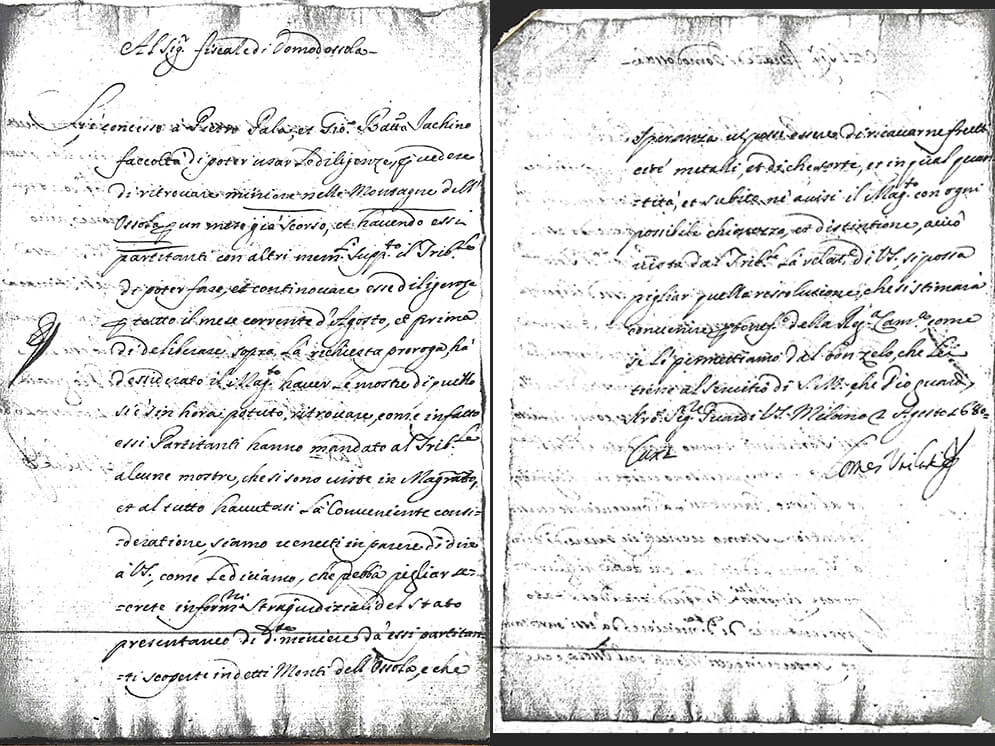 Al Sig.r fiscale di Domodossola
Fù concesso à Pietro Pala, et Gio. Batta Iachino
faccoltà di poter usar le diligenze, p vedere
di ritrovare miniere nelle Montagne dell'
Ossola p un mese già scorso, et havendo essi
partitanti con altri mem.li supp.to il Trib.le
di poter fare, et continovare esse diligenze
p tutto il mese corrente d'Agosto, e prima
di deliberare sopra la richiesta proroga, hà
dessiderato il Mag.to haver le mostre di quello
si è sin hora potuto ritrovare, come infatto
essi Partitanti hanno mandato al Trib.le
alcune mostre, che si sono viste in Mag.rato,
et al tutto havutasi la Conveniente consi=
=deratione, siamo venuti in parere di dire
à VS., come le diciamo, che debba pigliar se=
=crete inform.ni stragiudiziali del stato
presentaneo di d.te miniere dà essi partitan
=ti scoperte in detti Monti dell'Ossola, e che
speranza vi possi essere di ricavarne frutti
etc metalli, et di che sorte, et in qual quan
=tità, et subito ne avisi il Mag.to con ogni
possibile chiarezza, et distintione, acciò
vista dal Trib.le la relat.e di VS. si possa
pigliar quella rissolutione, che si stimarà
convenire p della Reg.a Cam.a come
se li promettiamo dal bon zelo, che Lei
tiene al servitio di S.M., che Dio guardi,
Nro. Sig.re Guardi VS. Milano 2 Agosto 1680=